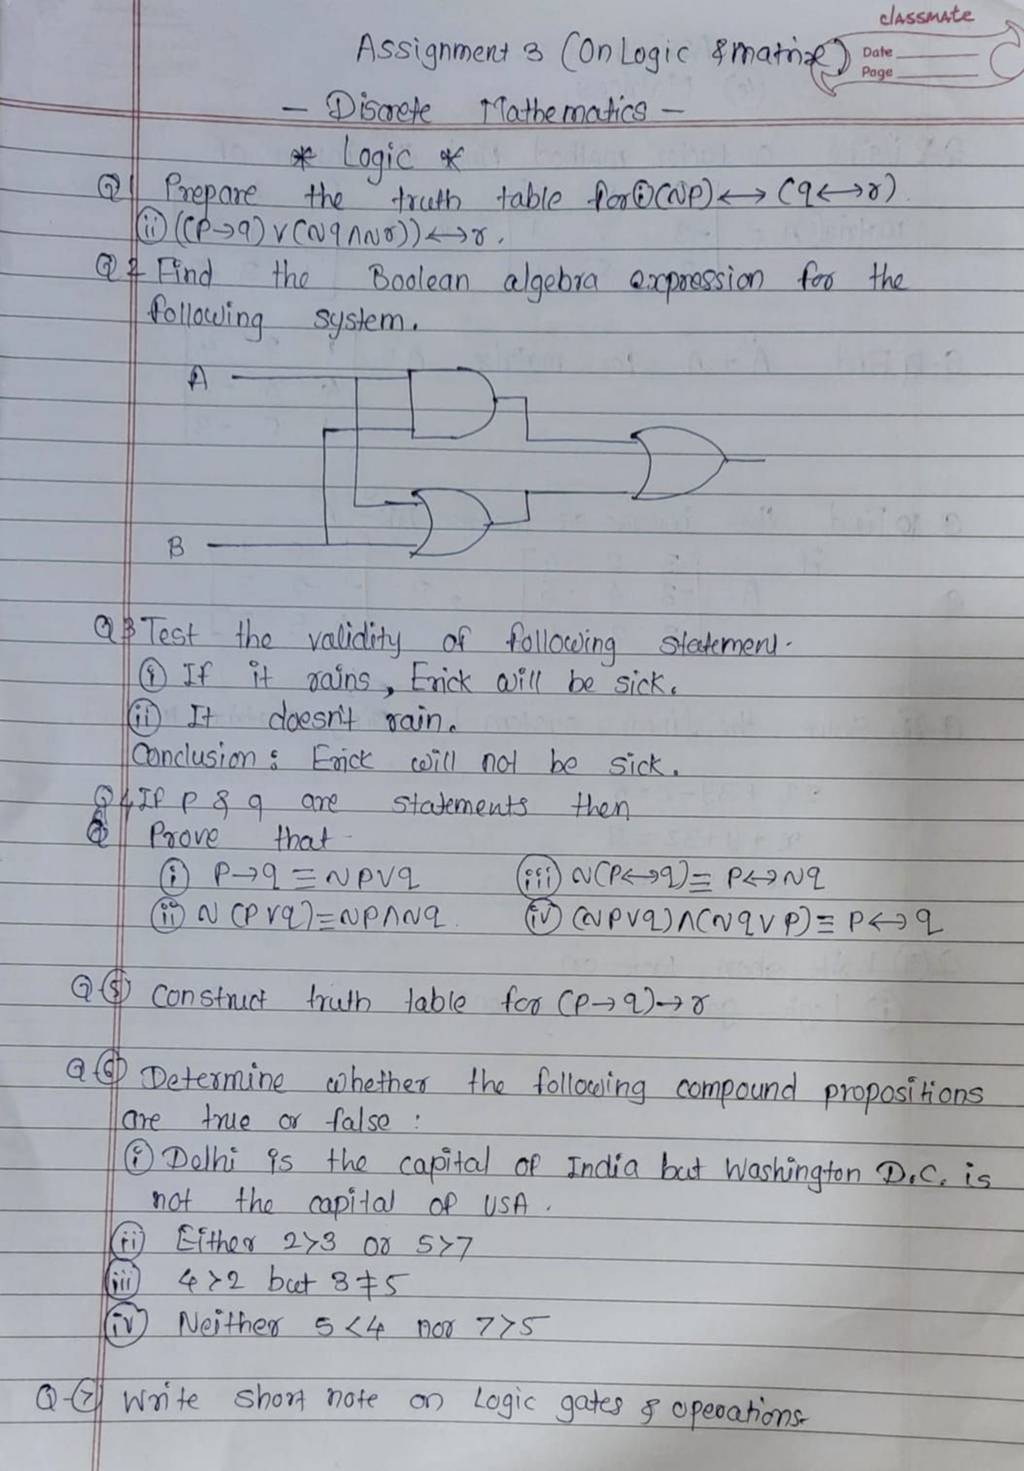 classmate
Date
Page
Assignment 3 (On Logic & matrix)
- Discrete Mathematics -
* Logic *
Q1 Prepare the truth table for (i) (~P) ↔ (q ↔ r)
(ii) ((P→q) ∨ (~q ∧ ~r)) ↔ r.
Q2 Find the Boolean algebra expression for the
following system.
A
B
Q3 Test the validity of following statement.
(i) If it rains, Erick will be sick.
(ii) It doesn't rain.
Conclusion : Erick will not be sick.
Q4 If P & q are statements then
Prove that
(i) P→q ≡ ~P∨q (iii) ~(P↔q) ≡ P↔~q
(ii) ~(P∨q) ≡ ~P∧~q (iv) (~P∨q)∧(~q∨P) ≡ P↔q
Q-(5) Construct truth table for (P→q)→r
Q-(6) Determine whether the following compound propositions
are true or false :
(i) Delhi is the capital of India but Washington D.C. is
not the capital of USA.
(ii) Either 2>3 or 5>7
(iii) 4>2 but 3≠5
(iv) Neither 5<4 nor 7>5
Q-(7) Write short note on Logic gates & operations